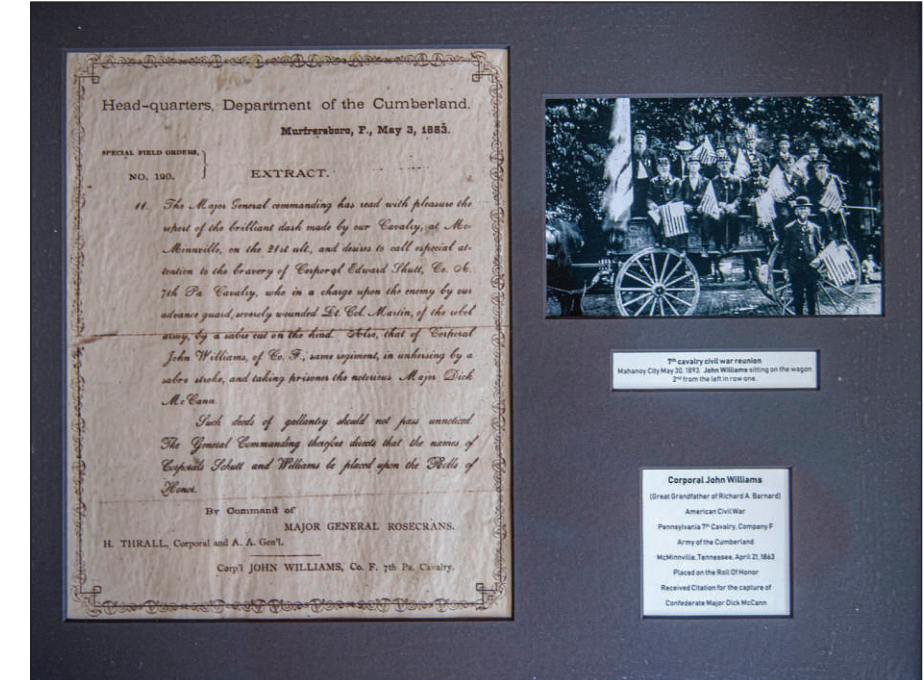 Head-quarters, Department of the Cumberland.
Murfreesboro, F., May 3, 1863.
SPECIAL FIELD ORDERS,
NO. 190.
EXTRACT.
The Major General commanding has read with pleasure the
report of the brilliant dash made by our Cavalry, at Mc-
Minnville, on the 21st ult, and desires to call especial at-
tention to the bravery of Corporal Edward Shutt, Co.
7th Pa Cavalry, who in a charge upon the enemy by our
advance guard, severely wounded Lt. Col. Martin, of the rebel
army, by a sabre cut on the head. Also, that of Corporal
John Williams, of Co. F., same regiment, in unhorsing by a
sabre stroke, and taking prisoner the notorious Major Dick
McCann
Such deeds of gallantry should not pass unnoticed.
The General Commanding therefore directs that the names of
Corporals Schutt and Williams be placed upon the Rolls of
Honor.
By Command of
MAJOR GENERAL ROSECRANS.
H. THRALL, Corporal and A. A. Gen'l.
Corp'l JOHN WILLIAMS, Co. F. 7th Pa. Cavalry.
7th cavalry civil war reunion
Mahanoy City May 30, 1893. John Williams sitting on the wagon
2nd from the left in row one.
Corporal John Williams
(Great Grandfather of Richard A. Barnard)
American Civil War
Pennsylvania 7th Cavalry, Company F
Army of the Cumberland
McMinnville, Tennessee, April 21, 1863
Placed on the Roll Of Honor
Received Citation for the capture of
Confederate Major Dick McCann